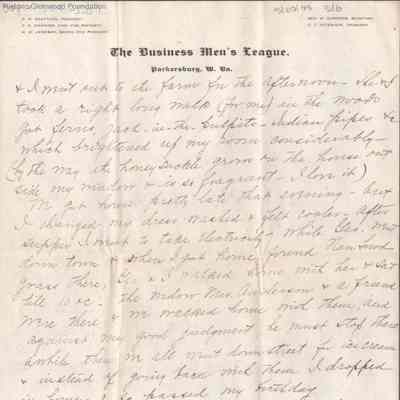 The Business Men's League.
Parkersburg, W. Va.
& I went out to the farm for the afternoon. She & I
took a right long walk (for me) in the woods
got ferns, Jack-in-the-Pulpits - Indian pipes &c
which brightened up my room considerably -
(by the way the honeysuckle grows on the house out
side my window & is so fragrant - I love it)
We got home pretty late that evening - but
I changed my dress washed & felt cooler. After
supper I went to take electricity - while Geo. went
down town & when I got home, found
Grace there, Geo. & I walked home with her & sat
till 10 oc. the widow Mrs. Anderson & a friend
were there & we walked home with them, and
against my good judgment he must stop there
awhile then we all went down street for icecream
& instead of going back with them I dropped
passed my birthday